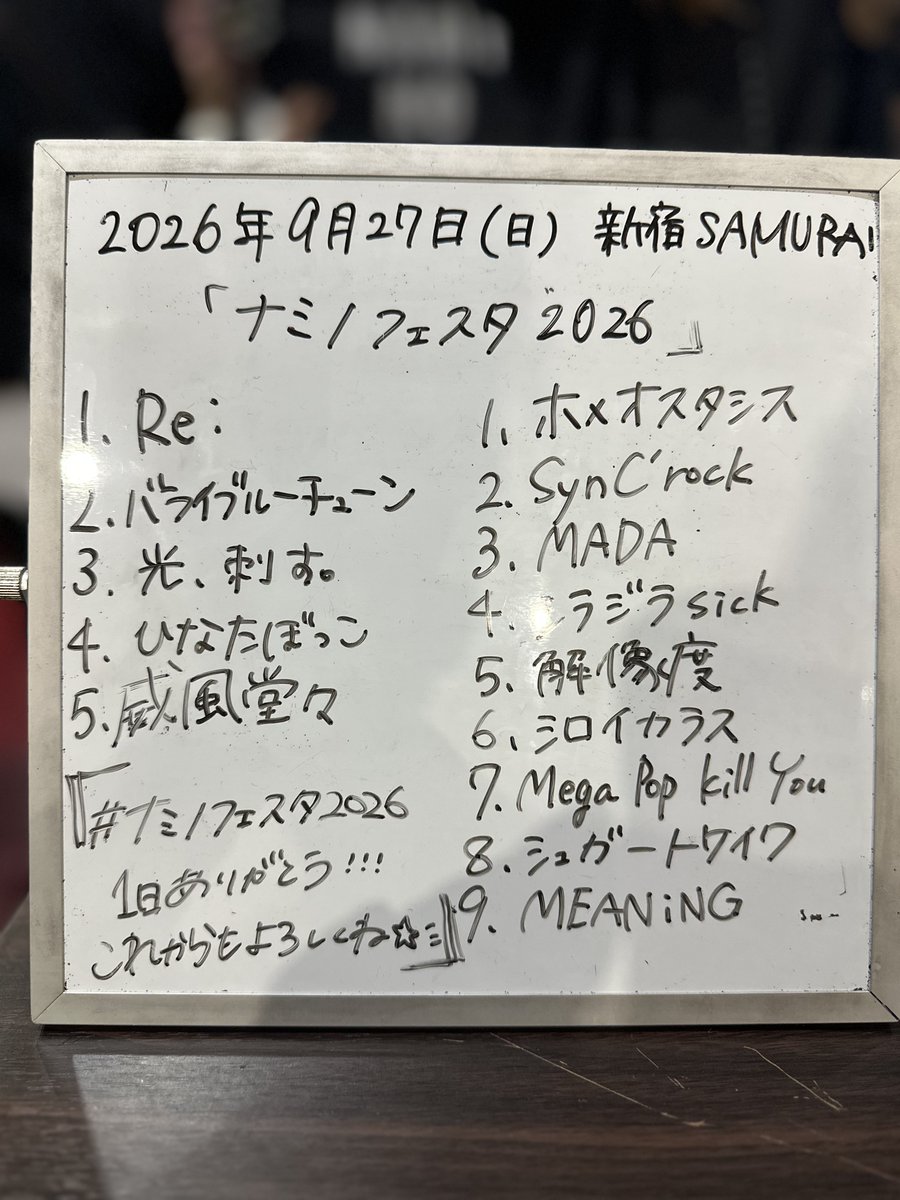 2026年9月27日(日) 新宿SAMURAI
「ナミノフェスタ2026』
1. Re:
2. バライブルーチューン
3. 光、刺す。
4. ひなたぼっこ
5. 威風堂々
『#ナミノフェスタ2026
1日ありがとう!!!
これからもよろしくね☆ミ』
1. ホメオスタシス
2. SynC'rock
3. MADA
4. ミラジラsick
5. 解像度
6. シロイカラス
7. Mega Pop kill You
8. シュガートワイワ
9. MEANiNG